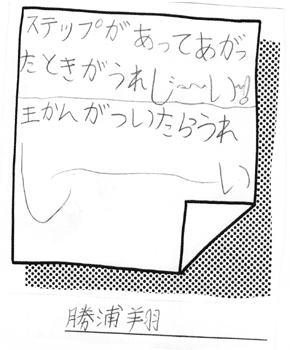 ステップがあってあがっ
たときがうれし〜い!!
王かんがついたらうれ
し――い
勝浦羊羽